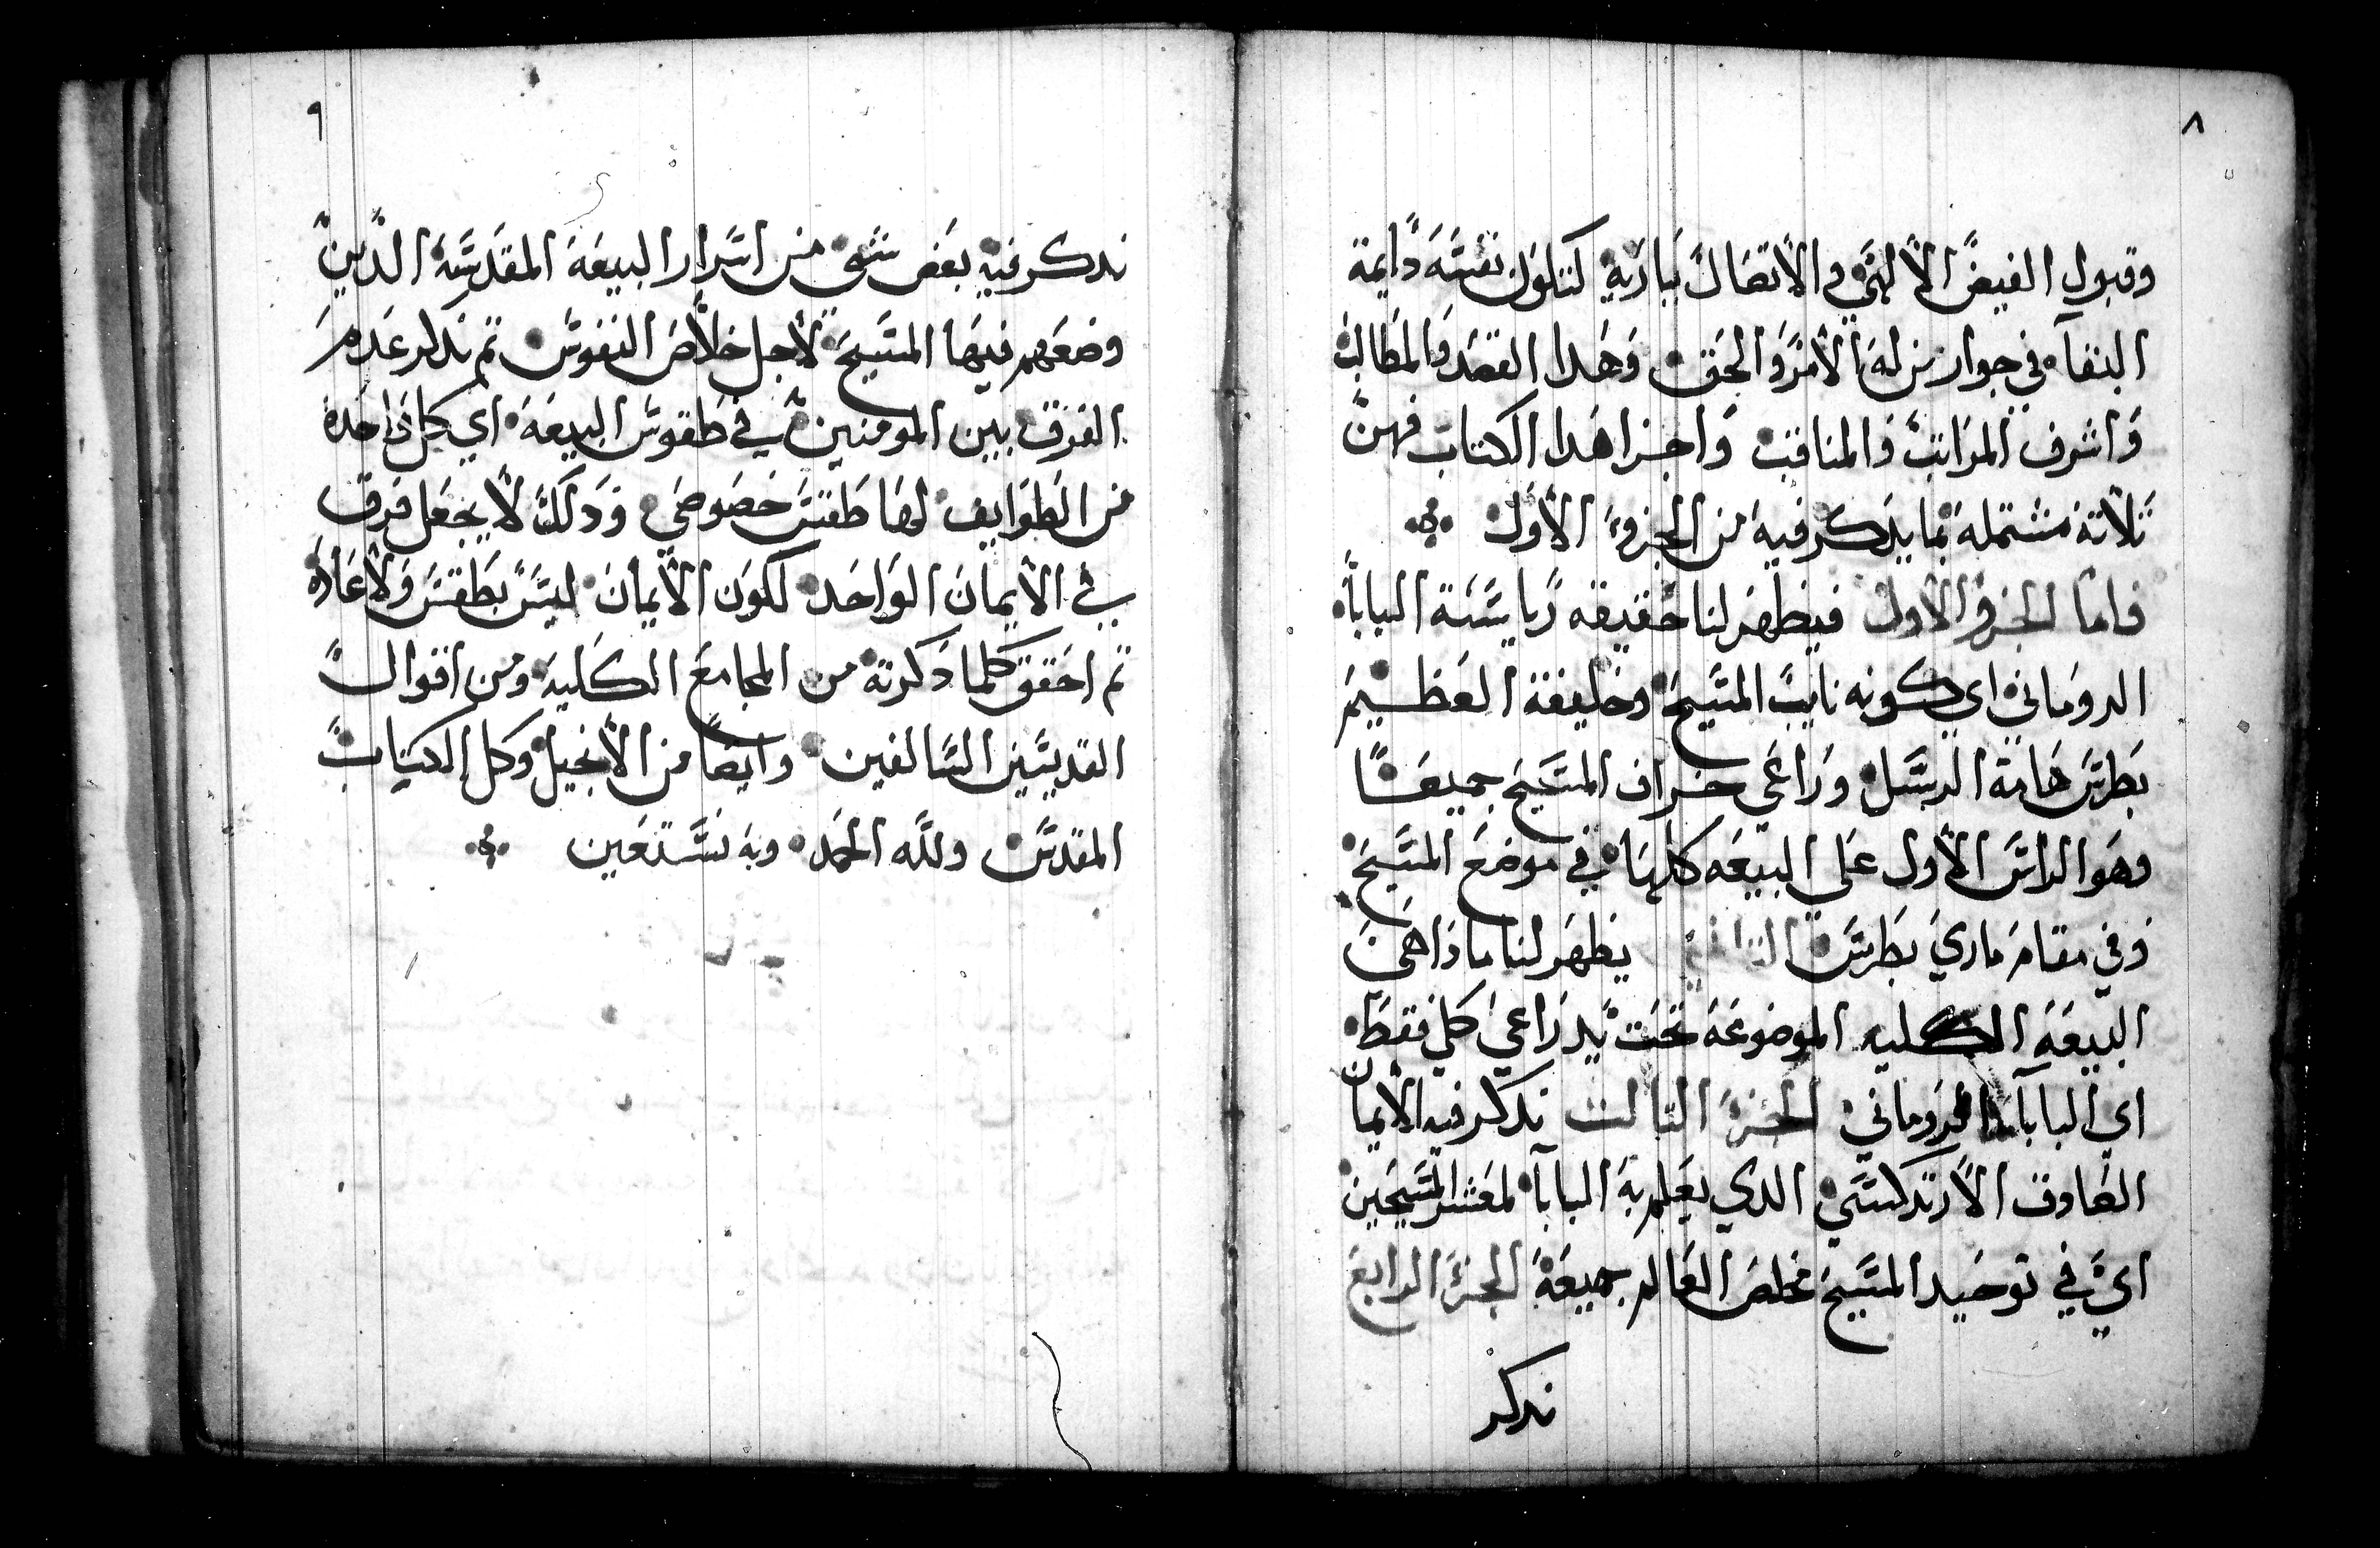 ٨
وقبول الفيض الألهي والأتصال بباريه لتكون نفسه دايمة
البقآ في جوار من له الأمر والحق وهدا القصد والمطالب
واشرف المراتب والمناقب واجزا هدا الكتاب فهن
تلاتة مشتملة بما يدكر فيه من الجزؤ الأول
فاما الجزؤ الأول فيظهر لنا حقيقه رياسة البابا
الروماني اي كونه نايب المسيح وخليفة العظيم
بطرس هامة الرسل وراعي خراف المسيح جميعًا
وهو الراس الأول علي البيعه كلها في موضع المسيح
وفي مقام ماري بطرس التاني يظهر لنا ما دا هي
البيعة الكليه الموضوعة تحت يد راعي كلي فقط
اي البابا الروماني الجزؤ التالت ندكر فيه الأيمان
الصاوق الأرتدكسي الدي يعلم به البابا لمعشر المسيحين
اي في توحيد المسيح مخلص العالم جميعة الجزؤ الرابع
ندكر
٩
ندكر فيه بعض شي من اسرار البيعة المقدسة الدين
وضعهم فيها المسيح لأجل خلاص النفوس تم ندكر عدم
الفرق بين المومنين في طقوس البيعة اي كل واحدة
من الطوايف لها طقس خصوصي ودلك لا يجعل فرق
في الأيمان الواحد لكون الأيمان ليس بطقس ولأعاده
تم احقق كلما دكرته من المجامع الكليه ومن اقوال
القديسين السالفين وايضًا من الأنجيل وكل الكتاب
المقدس ولله الحمد وبه نستعين